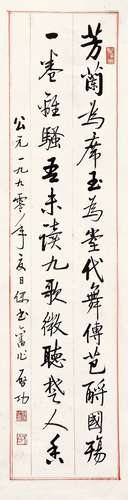 芳蘭為席玉為堂代舞傳芭酹國殤
一卷離騷吾未讀九歌微聽楚人香
公元一九九零年夏日偶書舊作 啓功